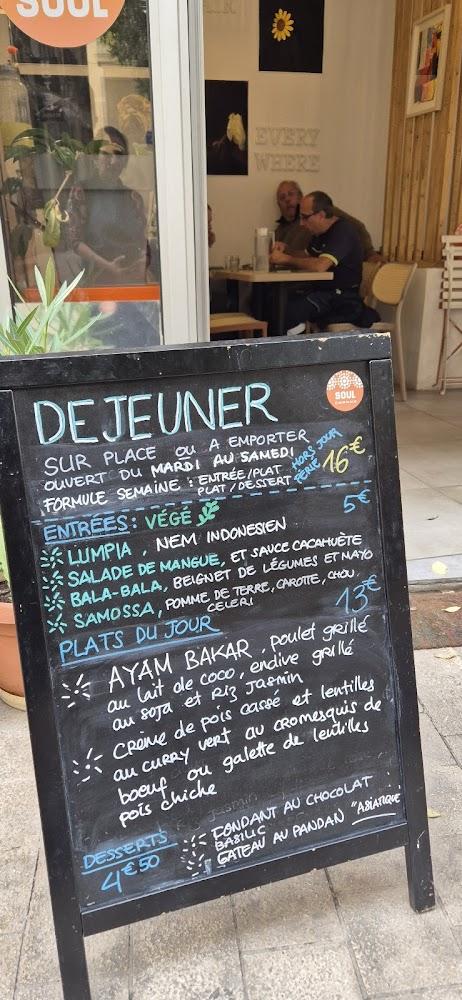 SOUL
EVERY
WHERE
SOUL
DEJEUNER
SUR PLACE OU A EMPORTER
OUVERT DU MARDI AU SAMEDI
FORMULE SEMAINE : ENTRÉE/PLAT
PLAT/DESSERT
HORS JOUR
FÉRIÉ
16€
ENTRÉES : VÉGÉ
5€
LUMPIA, NEM INDONESIEN
SALADE DE MANGUE, ET SAUCE CACAHUÈTE
BALA-BALA, BEIGNET DE LÉGUMES ET MAYO
SAMOSSA, POMME DE TERRE, CAROTTE, CHOU,
CELERI
PLATS DU JOUR
13€
AYAM BAKAR, poulet grillé
au lait de coco, endive grillé
au soja et Riz Jasmin
Crème de pois cassé et lentilles
au curry vert au cromesquis de
boeuf ou galette de lentilles
pois chiche
DESSERTS
4€50
FONDANT AU CHOCOLAT
BASILIC
GATEAU AU PANDAN "ASIATIQUE"